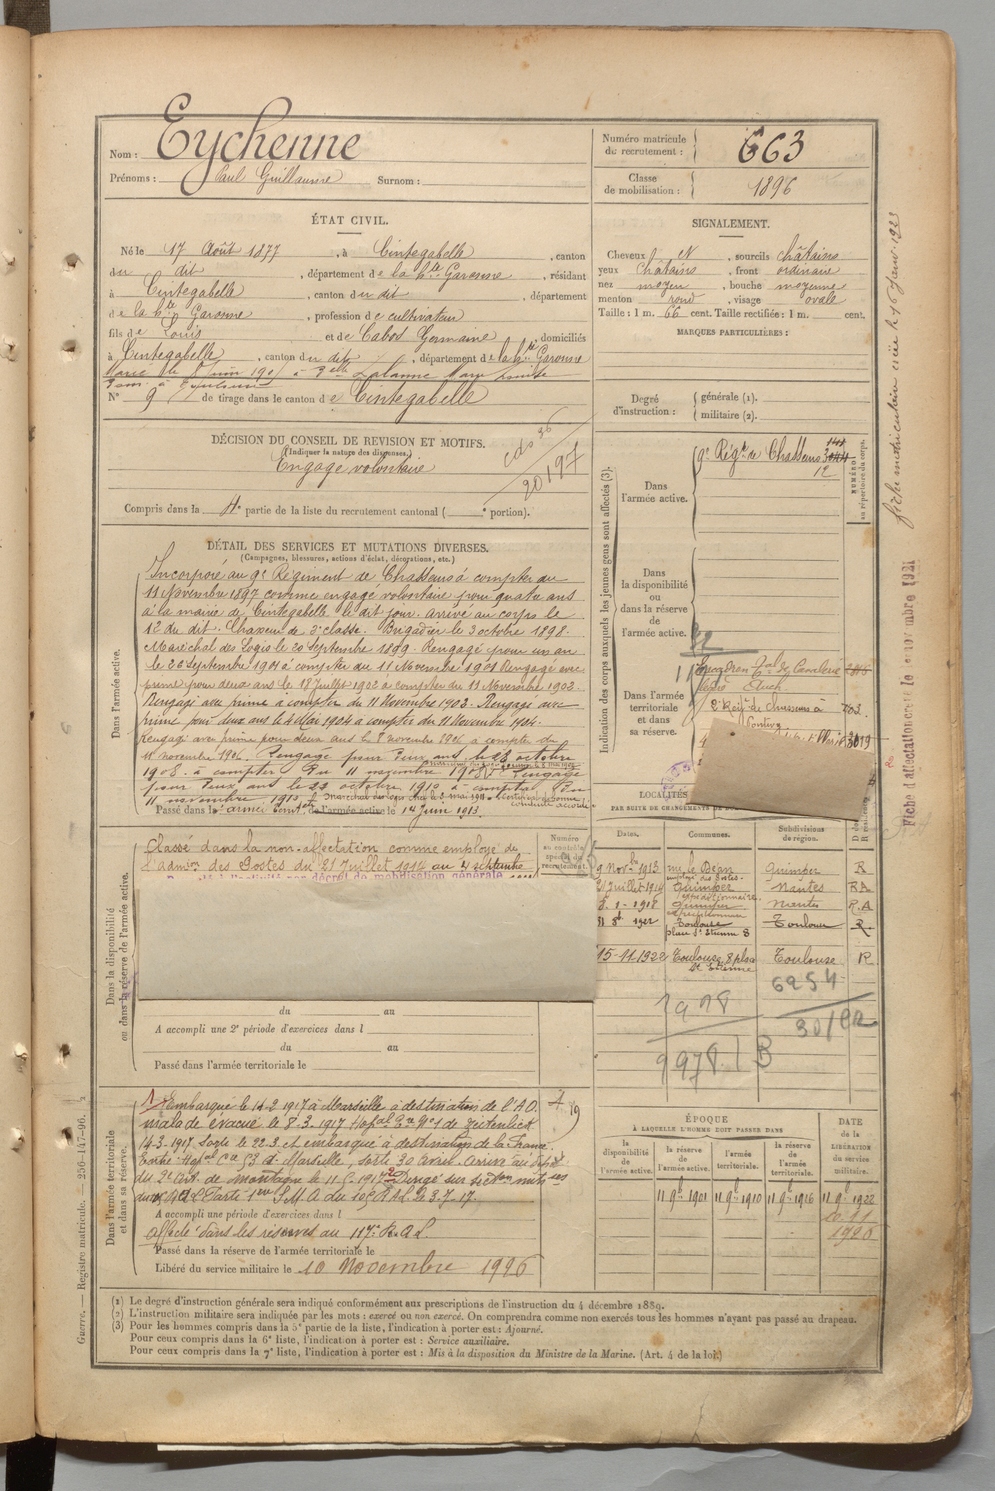 Nom : Eychenne
Prénoms : Paul Guillaume Surnom :
Numéro matricule du recrutement : 663
Classe de mobilisation : 1896
ÉTAT CIVIL.
Né le 17 Août 1877, à Cintegabelle, canton
du dit, département de la hte Garonne, résidant
à Cintegabelle, canton du dit, département
de la hte Garonne, profession de cultivateur
fils de Louis et de Cabos Germaine, domiciliés
à Cintegabelle, canton du dit, département de la hte Garonne
Marié le 8 juin 1901 à Delle Lalanne Marie
N° 9 de tirage dans le canton de Cintegabelle
SIGNALEMENT.
Cheveux et, sourcils châtains
yeux châtains, front ordinaire
nez moyen, bouche moyenne
menton rond, visage ovale
Taille : 1 m. 66 cent. Taille rectifiée : 1 m. cent.
MARQUES PARTICULIÈRES :
Degré d'instruction : générale (1).
militaire (2).
DÉCISION DU CONSEIL DE REVISION ET MOTIFS.
(Indiquer la nature des dispenses.)
Engagé volontaire
20197
Compris dans la 4e partie de la liste du recrutement cantonal ( e portion).
DÉTAIL DES SERVICES ET MUTATIONS DIVERSES.
(Campagnes, blessures, actions d'éclat, décorations, etc.)
Dans l'armée active.
Incorporé au 9e Régiment de Chasseurs à compter du
11 Novembre 1897 comme engagé volontaire pour quatre ans
à la mairie de Cintegabelle le dit jour. Arrivé au corps le
12 du dit. Chasseur de 2e classe. Brigadier le 3 octobre 1898.
Maréchal des Logis le 20 Septembre 1899. Rengagé pour un an
le 26 Septembre 1901 à compter du 11 Novembre 1901. Rengagé avec
prime pour deux ans le 18 Juillet 1902 à compter du 11 Novembre 1902.
Rengagé avec prime à compter du 11 Novembre 1903. Rengagé avec
prime pour deux ans le 4 Mai 1904 à compter du 11 Novembre 1904.
Rengagé avec prime pour deux ans le 8 novembre 1906 à compter du
11 novembre 1906. Rengagé pour deux ans le 28 octobre
1908 à compter du 11 novembre 1908. Rengagé
pour deux ans le 22 octobre 1910 à compter du
11 novembre 1910. Certificat de bonne conduite accordé
Passé dans l'armée territ. le 14 Juin 1913.
Indication des corps auxquels les jeunes gens sont affectés (3).
Dans l'armée active.
9e Régt de Chasseurs
12
NUMÉRO au répertoire du corps.
Dans la disponibilité ou dans la réserve de l'armée active.
Dans l'armée territoriale et dans sa réserve.
Escadron Tal de Cavalerie
Auch
2e Régt de Chasseurs à
Pontivy
703
LOCALITÉS
PAR SUITE DE CHANGEMENTS DE
Dates. Communes. Subdivisions de région.
9 Nov. 1913 Quimper R
21 Juillet 1914 Quimper Nantes RA
5.1.1918 Quimper Nantes R.A
1922 Toulouse place St Etienne 8 Toulouse R.
15-11-1922 Toulouse, 8 place St Etienne Toulouse R
6254
1978
9978 B
Dans la disponibilité ou dans la réserve de l'armée active.
Numéro au contrôle spécial du recrutement.
Classé dans la non-affectation comme employé de
l'admon des Postes du 21 Juillet 1914 au 4 septembre
du au
A accompli une 2e période d'exercices dans l
du au
Passé dans l'armée territoriale le
Dans l'armée territoriale et dans sa réserve.
Embarqué le 14.2.1917 à Marseille à destination de l'A.O.
malade évacué le 8.3.1917 Hopal No 1 de Zeitenlick
14.3.1917. Sorti le 22.3 et embarqué à destination de la France.
Entré Hopal 53 de Marseille, sorti 30 avril. Arrivé au dépôt
du 2e Art. de montagne le 11.5.1917. Dirigé sur
A accompli une période d'exercices dans l
affecté dans les réserves au 117e R.A.L.
Passé dans la réserve de l'armée territoriale le
Libéré du service militaire le 10 Novembre 1926
ÉPOQUE
À LAQUELLE L'HOMME DOIT PASSER DANS
la disponibilité de l'armée active. la réserve de l'armée active. l'armée territoriale. la réserve de l'armée territoriale.
DATE de la LIBÉRATION du service militaire.
11. 9b 1901 11. 9b 1910 11. 9b 1916 11. 9b 1922
1926
(1) Le degré d'instruction générale sera indiqué conformément aux prescriptions de l'instruction du 4 décembre 1889.
(2) L'instruction militaire sera indiquée par les mots : exercé ou non exercé. On comprendra comme non exercés tous les hommes n'ayant pas passé au drapeau.
(3) Pour les hommes compris dans la 5e partie de la liste, l'indication à porter est : Ajourné.
Pour ceux compris dans la 6e liste, l'indication à porter est : Service auxiliaire.
Pour ceux compris dans la 7e liste, l'indication à porter est : Mis à la disposition du Ministre de la Marine. (Art. 4 de la loi.)
Guerre. — Registre matricule. — 256-147-96.
fiche matriculaire créée le 16 Janv. 1923
Fiche d'affectation créée le novembre 1921